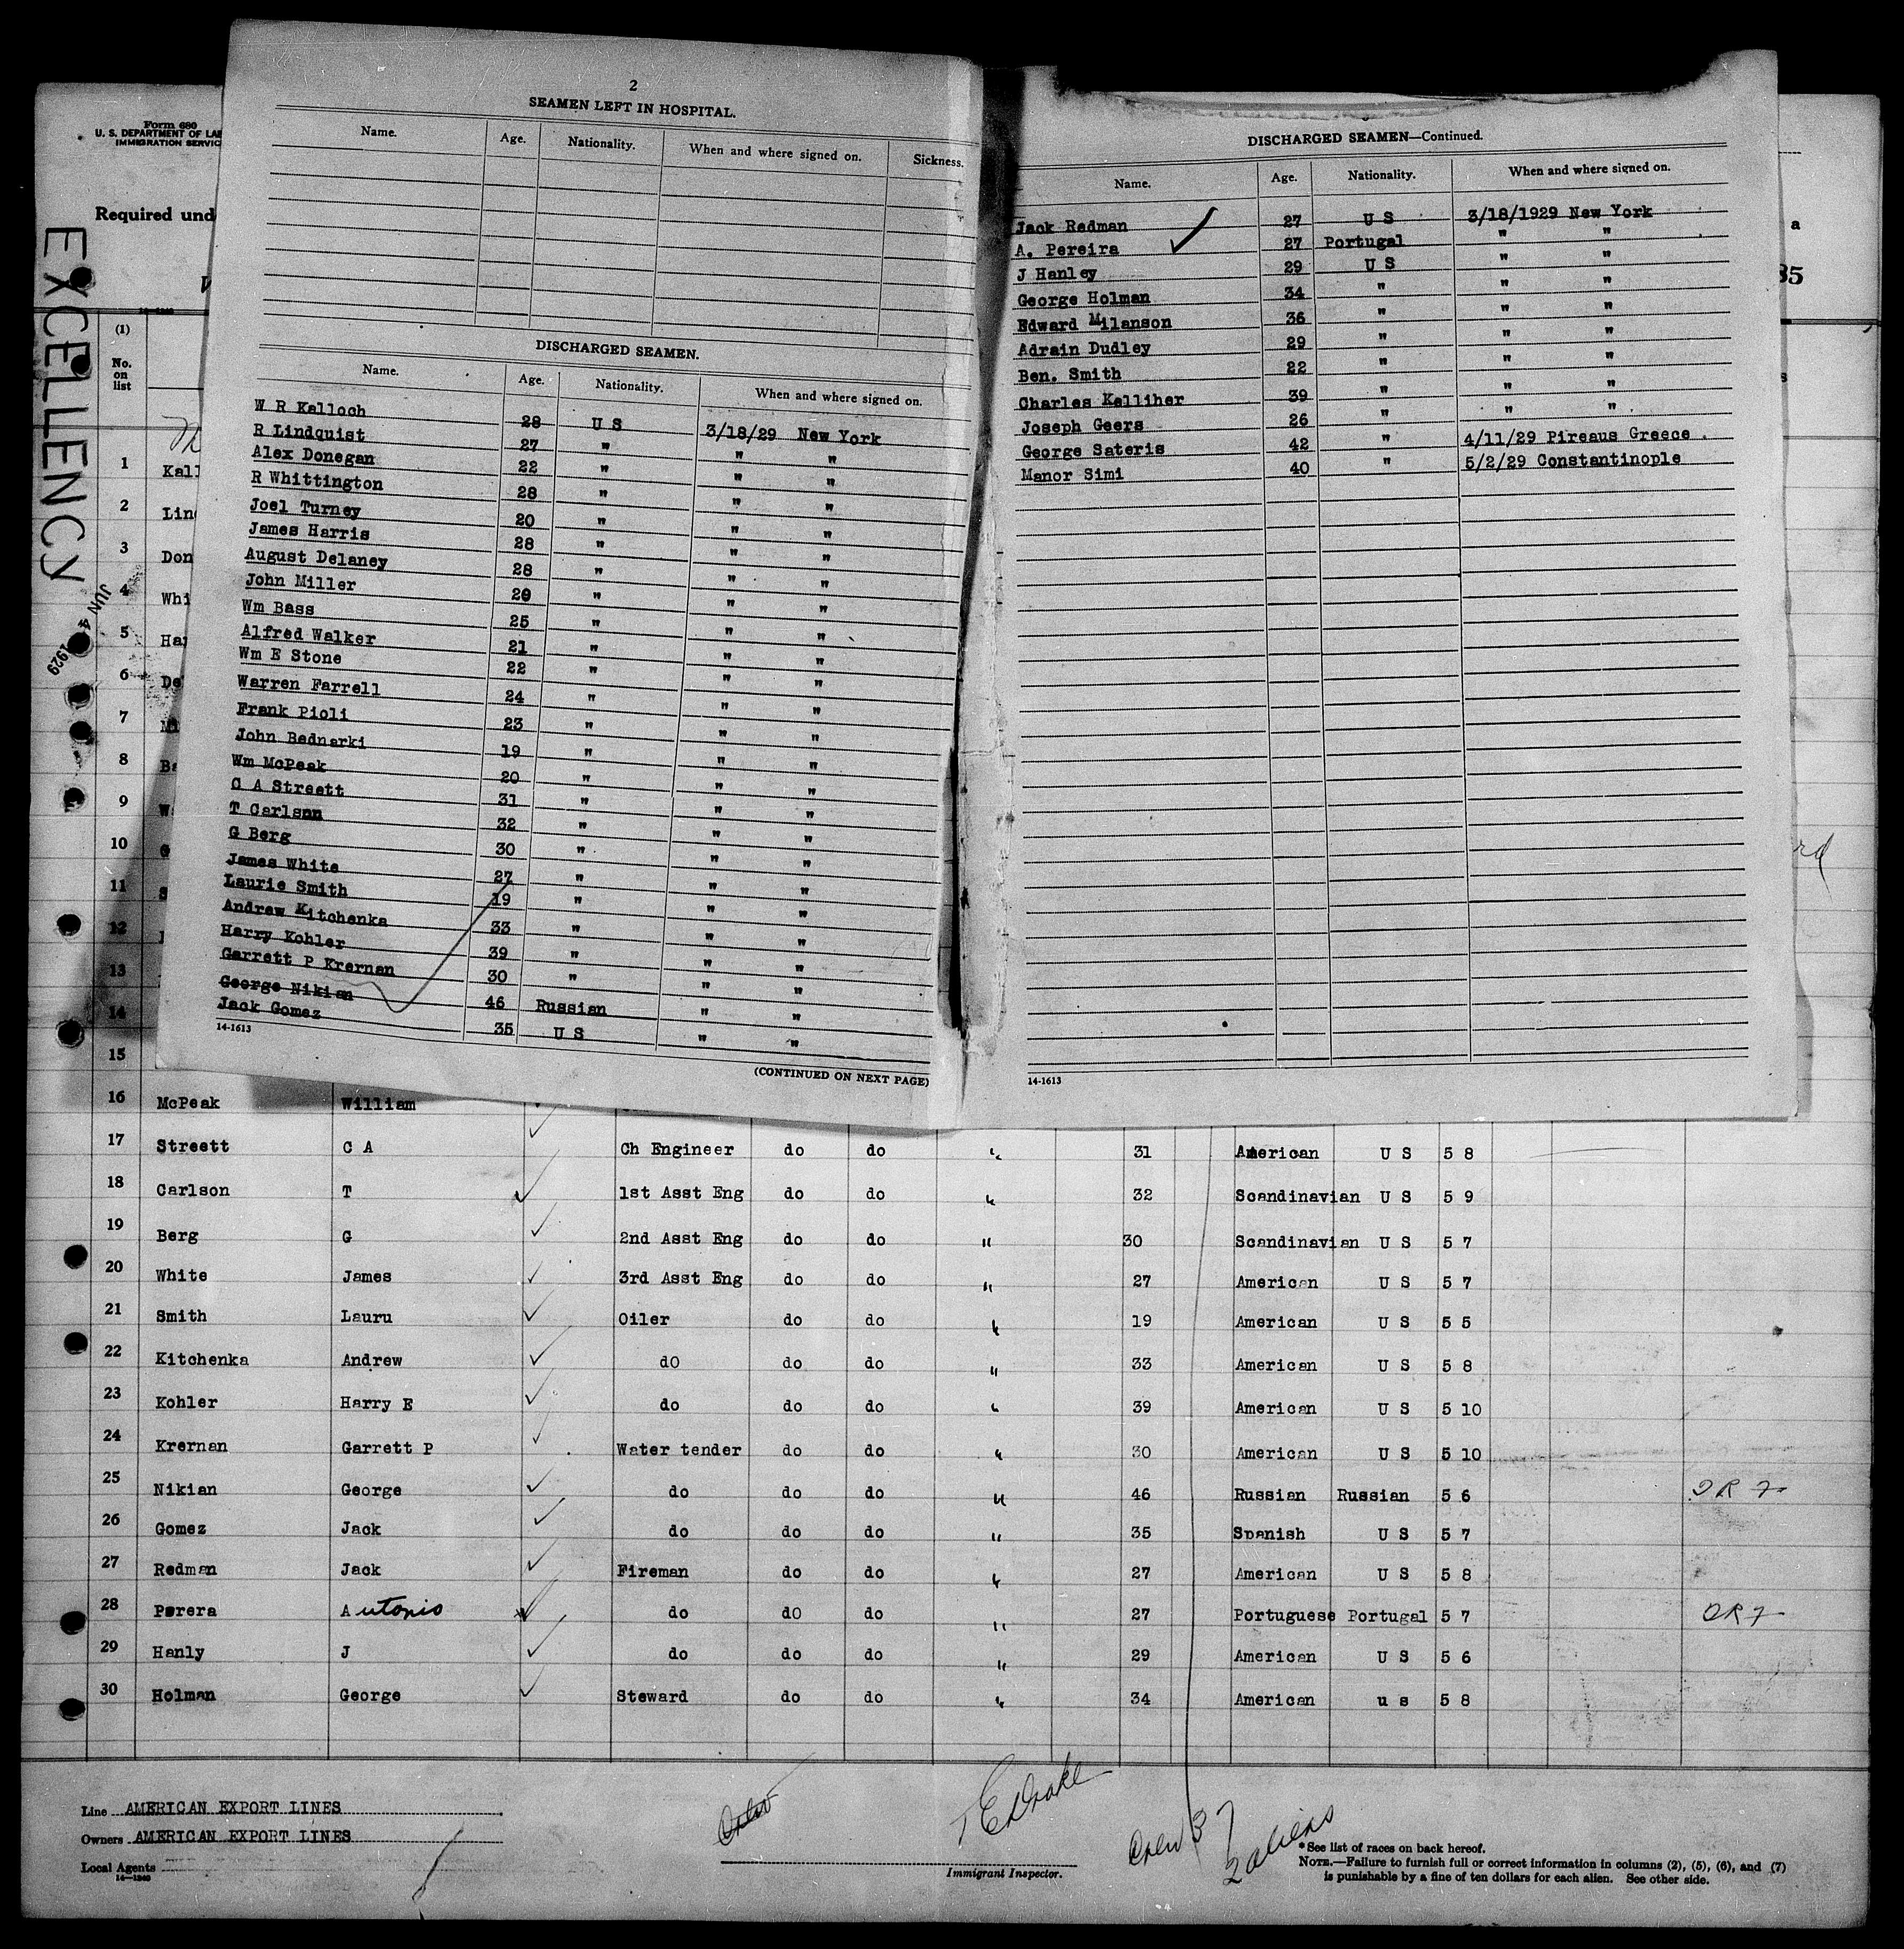 2
SEAMEN LEFT IN HOSPITAL.
Name. Age. Nationality. When and where signed on. Sickness.
DISCHARGED SEAMEN.
Name. Age. Nationality. When and where signed on.
W R Kalloch 28 U S 3/18/29 New York
R Lindquist 27 " " "
Alex Donegan 22 " " "
R Whittington 28 " " "
Joel Turney 20 " " "
James Harris 28 " " "
August Delaney 28 " " "
John Miller 20 " " "
Wm Bass 25 " " "
Alfred Walker 21 " " "
Wm E Stone 22 " " "
Warren Farrell 24 " " "
Frank Pioli 23 " " "
John Bednarki 19 " " "
Wm McPeak 20 " " "
C A Streett 31 " " "
T Carlson 32 " " "
G Berg 30 " " "
James White 27 " " "
Laurie Smith 19 " " "
Andrew Kitchenka 33 " " "
Harry Kohler 39 " " "
Garrett P Krernan 30 " " "
George Nikian 46 Russian " "
Jack Gomez 35 U S " "
14-1613
(CONTINUED ON NEXT PAGE)
DISCHARGED SEAMEN—Continued.
Name. Age. Nationality. When and where signed on.
Jack Redman 27 U S 3/18/1929 New York
A. Pereira 27 Portugal " "
J Hanley 29 U S " "
George Holman 34 " " "
Edward Milanson 36 " " "
Adrain Dudley 29 " " "
Ben. Smith 22 " " "
Charles Kelliher 39 " " "
Joseph Geers 26 " " "
George Sateris 42 " 4/11/29 Pireaus Greece
Manor Simi 40 " 5/2/29 Constantinople
14-1613
Form 680
U. S. DEPARTMENT OF LAB
IMMIGRATION SERVIC
Required und
a
35
EXCELLENCY
JUN 4 1929
(1)
No. on list
1 Kall
2 Lind
3 Don
4 Whi
5 Har
6 De
7 Mi
8 Ba
9 Wa
10 G
11 S
12
13
14
15
16 McPeak William
17 Streett C A Ch Engineer do do " 31 American U S 5 8
18 Carlson T 1st Asst Eng do do " 32 Scandinavian U S 5 9
19 Berg G 2nd Asst Eng do do " 30 Scandinavian U S 5 7
20 White James 3rd Asst Eng do do " 27 American U S 5 7
21 Smith Lauru Oiler do do " 19 American U S 5 5
22 Kitchenka Andrew dO do do " 33 American U S 5 8
23 Kohler Harry E do do do " 39 American U S 5 10
24 Krernan Garrett P Water tender do do " 30 American U S 5 10
25 Nikian George do do do " 46 Russian Russian 5 6
26 Gomez Jack do do do " 35 Spanish U S 5 7
27 Redman Jack Fireman do do " 27 American U S 5 8
28 Perera Antonio do dO do " 27 Portuguese Portugal 5 7
29 Hanly J do do do " 29 American U S 5 6
30 Holman George Steward do do " 34 American u s 5 8
Line AMERICAN EXPORT LINES
Owners AMERICAN EXPORT LINES
Local Agents
14—1240
Drake
Immigrant Inspector.
Crew 37
2 aliens
* See list of races on back hereof.
NOTE.—Failure to furnish full or correct information in columns (2), (5), (6), and (7)
is punishable by a fine of ten dollars for each alien. See other side.